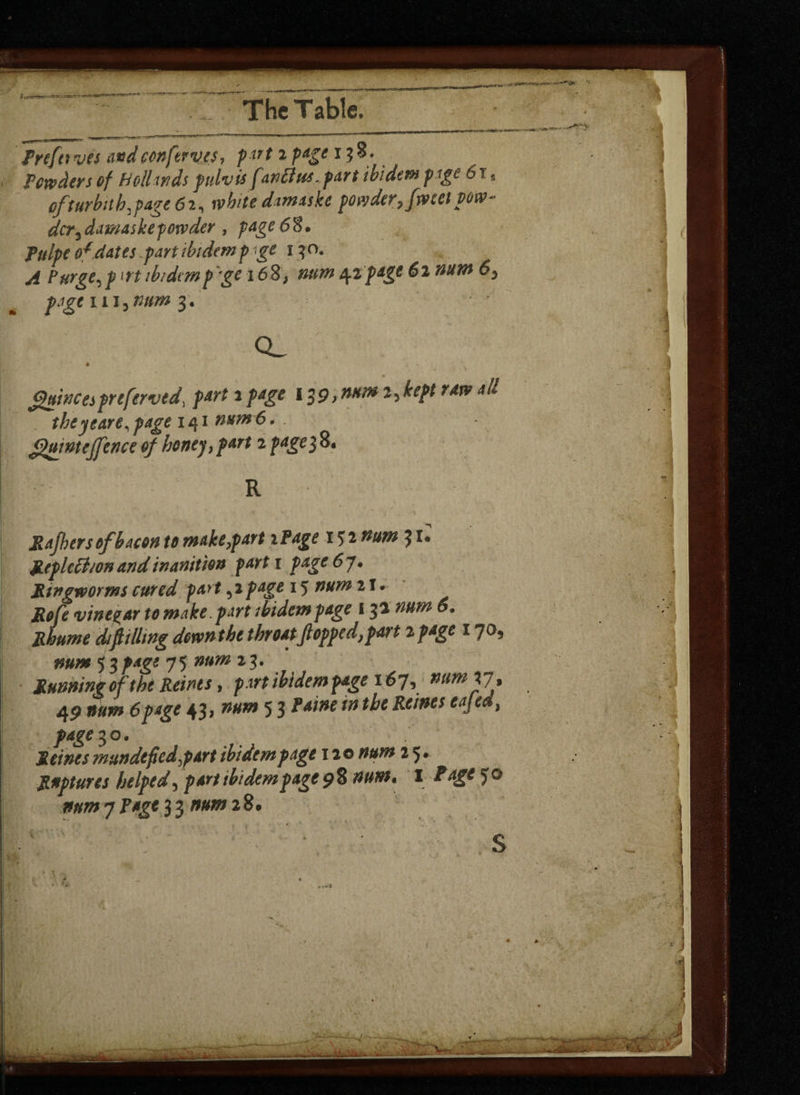 The Table.
Preserves and conserves, part 2 page 138.
Powders of Hollands pulvis sanctus. part ibidem page 61,
of turbith, page 62, white damaske powder, sweet pow-
der, damaske powder, page 68.
Pulpe of dates part ibidem page 130.
A Purge, part ibidem page 168, num 42 page 62 num 6,
page 111, num 3.
Q
Quinces preserved, part 2 page 139, num 2, kept raw all
the yeare, page 141 num 6.
Quintessence of honey, part 2 page 38.
R
Rashers of bacon to make, part 2 Page 152 num 31.
Repletion and inanition part 1 page 67.
Ringworms cured part, 2 page 15 num 21.
Rose vinegar to make. part ibidem page 132 num 6.
Rhume distilling down the throat stopped, part 2 page 170,
num 53 page 75 num 23.
Running of the Reines, part ibidem page 167, num 37,
49 num 6 page 43, num 53 Paine in the Reines eased,
page 30.
Reines mundefied, part ibidem page 120 num 25.
Ruptures helped, part ibidem page 98 num. 1 Page 50
num 7 Page 33 num 28.
S